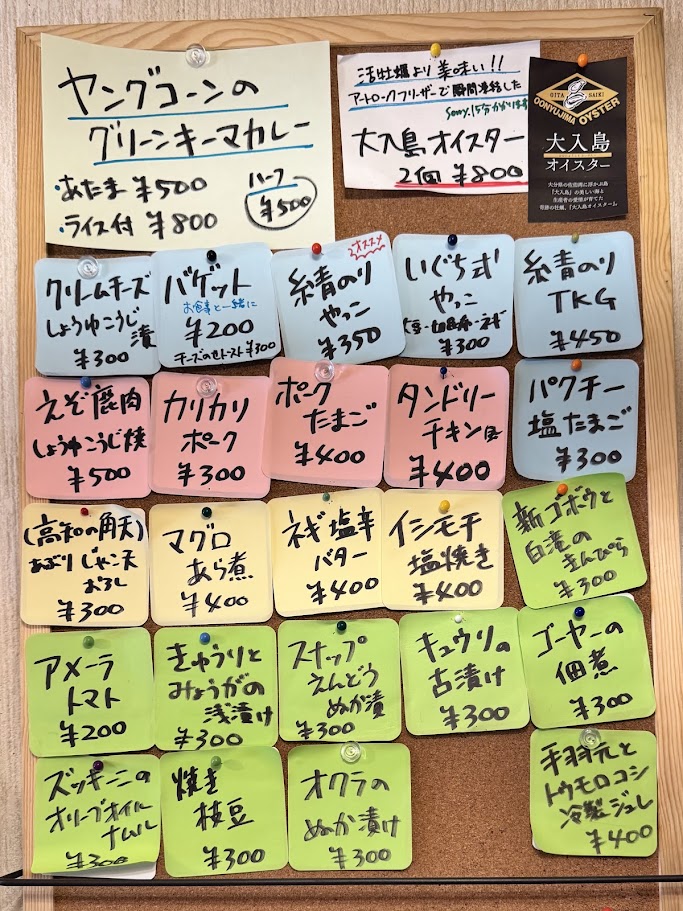 ヤングコーンの
グリーンキーマカレー
・あたま ¥500
・ライス付 ¥800
ハーフ
¥500
活牡蠣より美味い!!
アートロックフリーザーで瞬間凍結した
大入島オイスター
2個 ¥800
OITA SAIKI
OONYUJIMA OYSTER
大入島
オイスター
大分県の佐伯湾に浮かぶ島
「大入島」の美しい海と
生産者の愛情が育てた
奇跡の牡蠣、「大入島オイスター」。
クリームチーズ
しょうゆこうじ
漬
¥300
バゲット
お食事と一緒に
¥200
チーズのせトースト¥300
オススメ
糸青のり
やっこ
¥350
いぐち式
やっこ
¥300
糸青のり
TKG
¥450
えぞ鹿肉
しょうゆこうじ焼
¥500
カリカリ
ポーク
¥300
ポーク
たまご
¥400
タンドリー
チキン
¥400
パクチー
塩たまご
¥300
(高知の角天)
あぶりじゃこ天
おろし
¥300
マグロ
あら煮
¥400
ネギ塩辛
バター
¥400
イシモチ
塩焼き
¥400
新ゴボウと
白滝の
きんぴら
¥300
アメーラ
トマト
¥200
きゅうりと
みょうがの
浅漬け
¥300
スナップ
えんどう
ぬか漬
¥300
キュウリの
古漬け
¥300
ゴーヤーの
佃煮
¥300
ズッキーニの
オリーブオイル
ナムル
¥300
焼き
枝豆
¥300
オクラの
ぬか漬け
¥300
手羽元と
トウモロコシ
冷製ジュレ
¥400